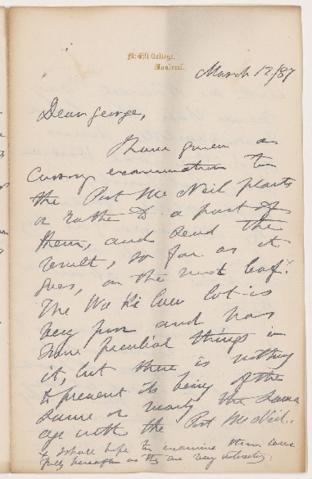 McGill College,
Montreal.
March 12/87
Dear George,
I have given a
cursory examination to
the Port McNeil plants
or rather to a part of
them, and send the
result, so far as it
goes, on the next leaf.
The lot is
very fine and has
some peculiar things in
it, but there is nothing
to prevent its being of the
same or nearly the same
age with the Port McNeil.
I shall hope to examine them care
fully hereafter as they are very interesting.